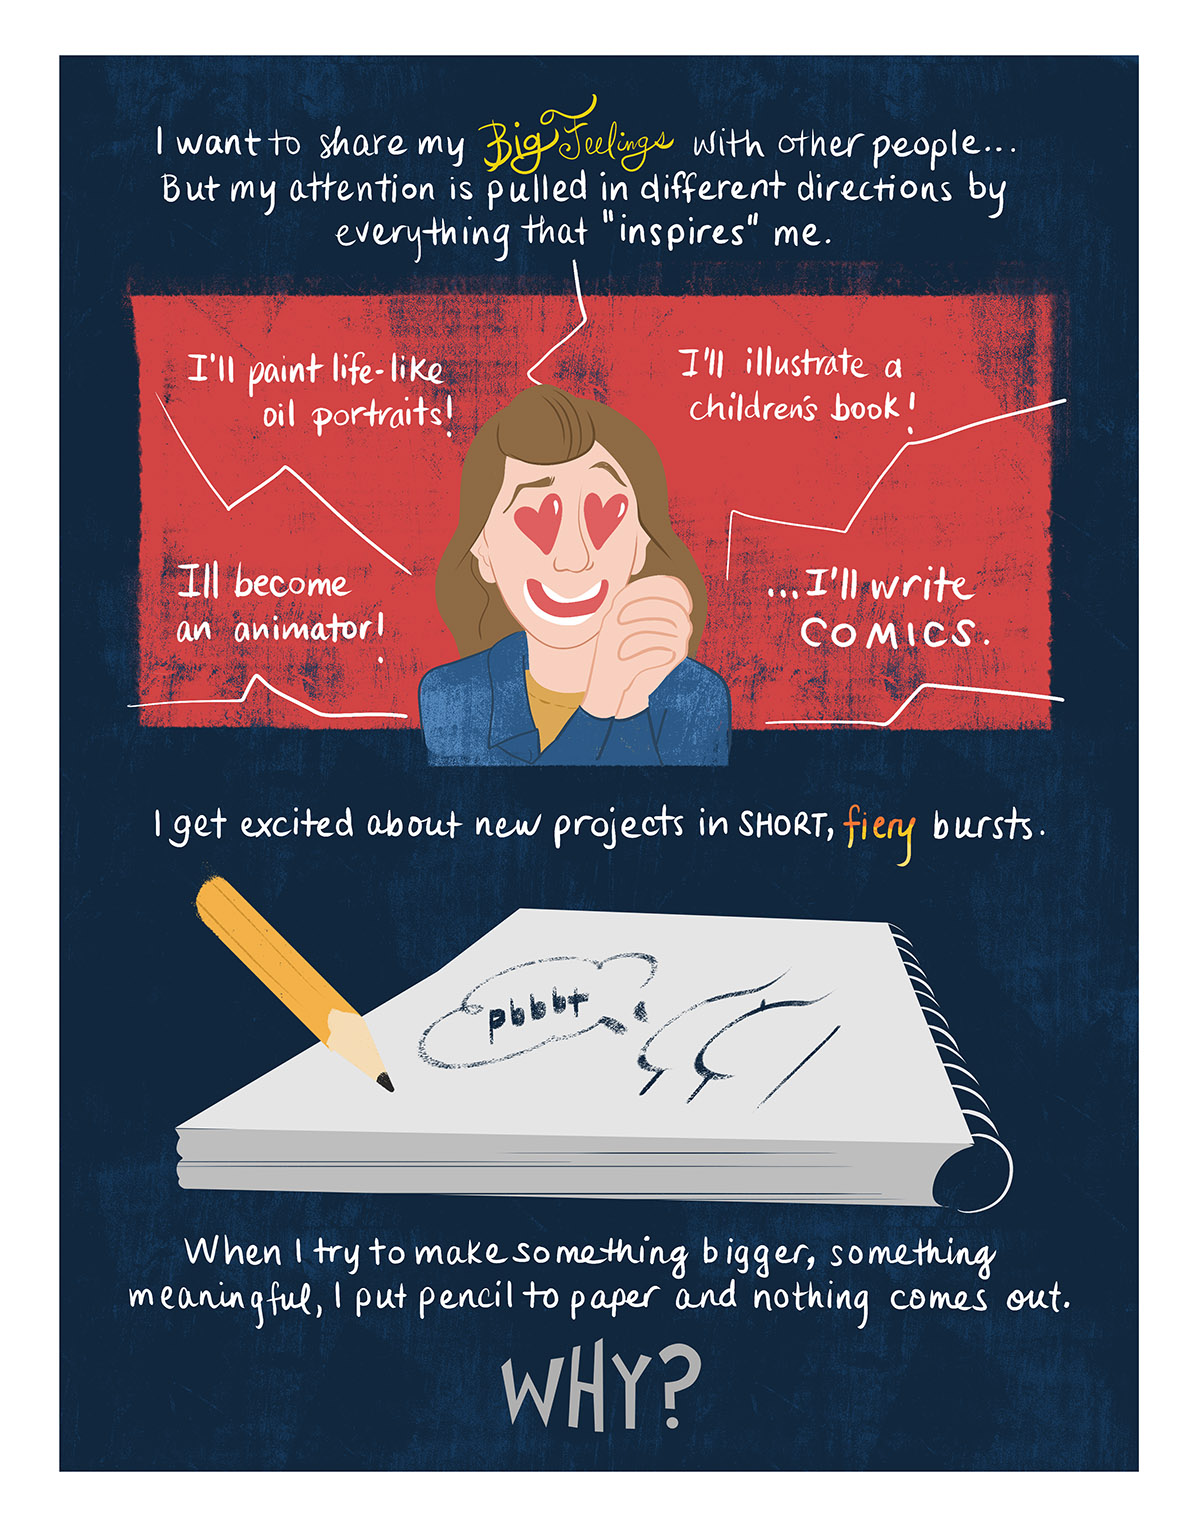 I want to share my Big Feelings with other people...
But my attention is pulled in different directions by
everything that "inspires" me.
I'll paint life-like
oil portraits!
I'll illustrate a
children's book!
Ill become
an animator!
...I'll write
COMICS.
I get excited about new projects in SHORT, fiery bursts.
pbbbt
When I try to make something bigger, something
meaningful, I put pencil to paper and nothing comes out.
WHY?